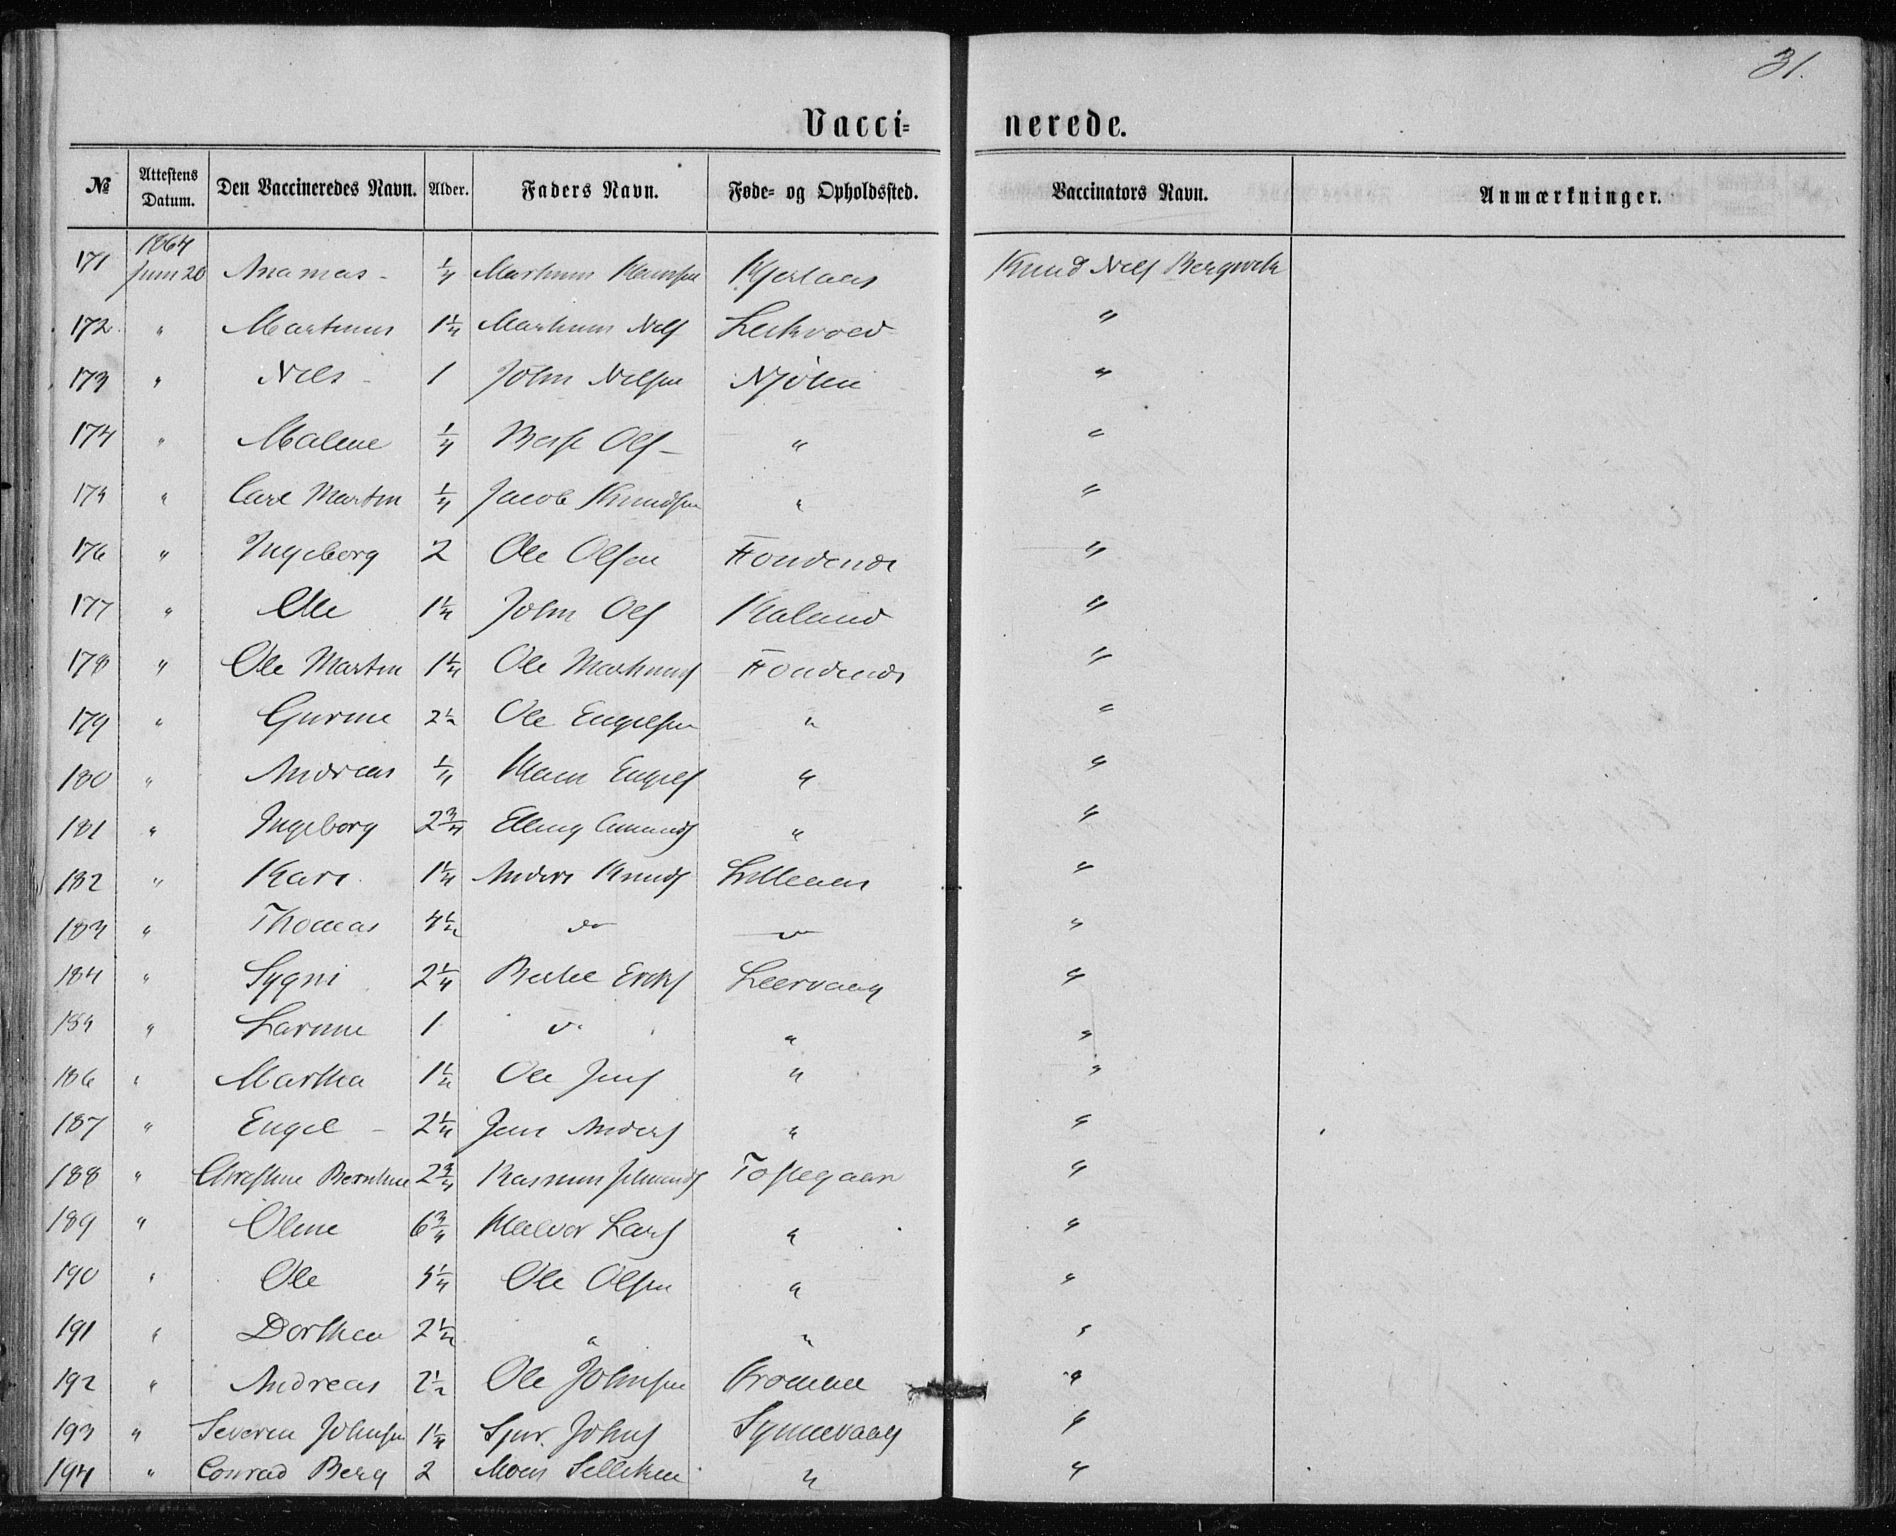 31.
Vacci= nerede.
№ Attestens Datum. Den Vaccineredes Navn. Alder. Faders Navn. Føde= og Opholdssted. Vaccinators Navn. Anmærkninger.
1864
171 Juni 20 Ananias - 1/4 Markuus Knud Nels Bergwck
172 " Martinus 1 1/4 Markuus Nels "
173 " Nels - 1 John Nelsen Njølen "
174 " Malene 1/4 Ols - " "
175 " Carl Martin 1/4 Jacob Knudsen " "
176 " Ingeborg 2 Ole Olsen Fondenæs "
177 " Ole 1 1/4 John Ols Kaland "
178 " Ole Martin 1 1/4 Ole Markuus Fondenæs "
179 " Gurine 2 1/2 Ole Engelsen " "
180 " Andreas 1/4 Engels " "
181 " Ingeborg 2 3/4 Elling Amunds " "
182 " Kari 1 1/4 Anders Knuds Lilleaas "
183 " Thomas 4 1/2 do do "
184 " Sygni 2 1/4 Ericks Leervaag "
185 " Larine 1 do " "
186 " Martha 1 1/4 Ole Jens " "
187 " Engel - 2 1/4 Jens Anders " "
188 " Christine Berntine 2 3/4 Rasmus Toftegaar "
189 " Oline 6 3/4 Halvor Lars " "
190 " Ole 5 1/4 Ole Olsen " "
191 " Dorthea 2 1/2 " " "
192 " Andreas 2 1/2 Ole Johnsen "
193 " Severin Johnsen 1 1/4 Sjur Johns Synnevaag "
194 " Conrad Berg 2 Mons " "